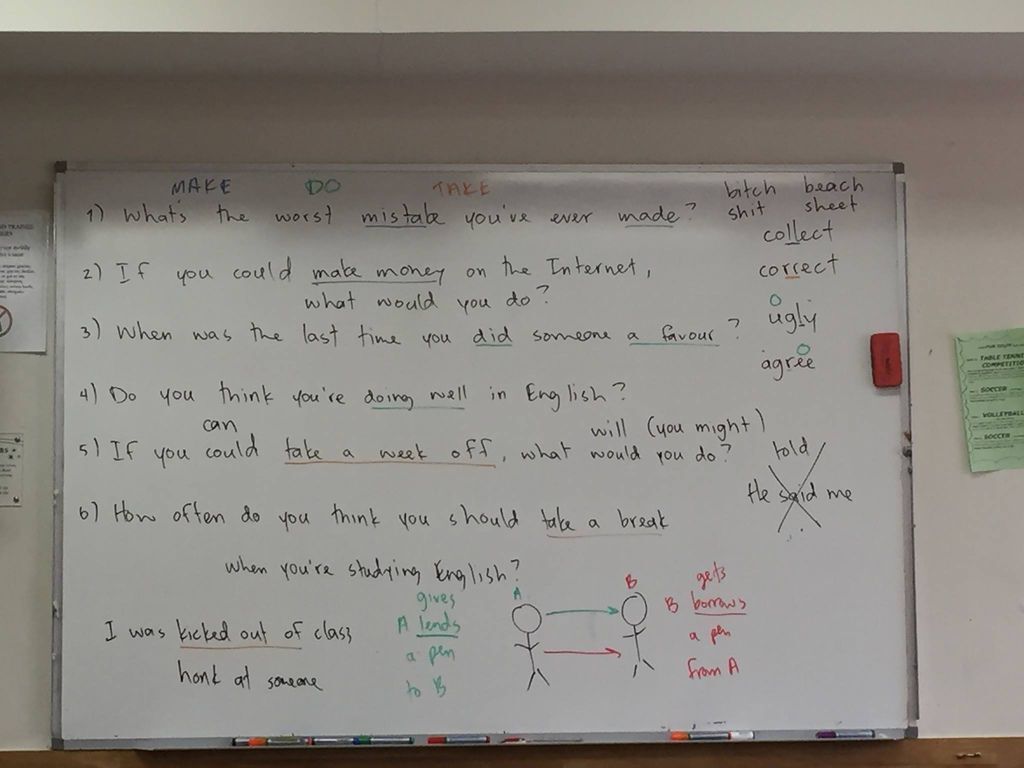 MAKE DO TAKE
1) What's the worst mistake you've ever made?
2) If you could make money on the Internet,
what would you do?
3) When was the last time you did someone a favour?
4) Do you think you're doing well in English?
can will (you might)
5) If you could take a week off, what would you do?
6) How often do you think you should take a break
when you're studying English?
I was kicked out of class
honk at someone
bitch beach
shit sheet
collect
correct
ugly
agree
told
He said me
gives
A lends
a pen
to B
A
B
gets
B borrows
a pen
from A
TABLE TENNIS
COMPETITION
SOCCER
VOLLEYBALL
SOCCER